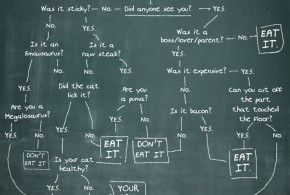 Was it sticky?
No.
Did anyone see you?
YES.
No.
YES.
Was it a
boss/lover/parent?
No.
EAT
IT.
Is it an
Emausaurus?
Is it a
raw steak?
YES.
Was it expensive?
YES.
No.
YES.
No.
YES.
No.
Did the cat
lick it?
Are you
a puma?
Can you cut off
the part
that touched
the floor?
Are you a
Megalosaurus?
Is it bacon?
No.
YES.
No.
YES.
No.
YES.
No.
YES.
No.
YES.
DON'T
EAT IT
EAT
IT.
DON'T
EAT IT
EAT
IT.
Is your cat
healthy?
YOUR